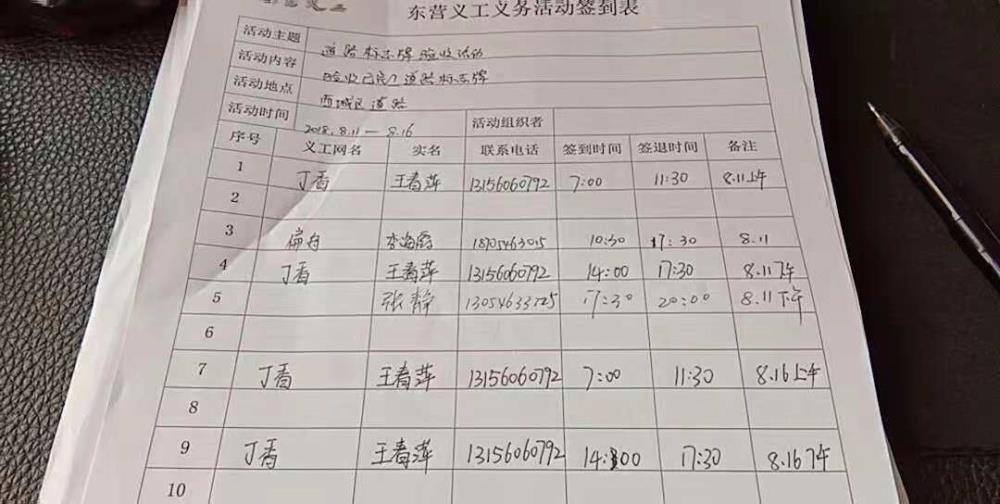 东营义工义务活动签到表
活动主题 道路标志牌验收活动
活动内容 验收已完工道路标志牌
活动地点 西城区道路
活动时间 2018.8.11—8.16 活动组织者
序号 义工网名 实名 联系电话 签到时间 签退时间 备注
1 丁香 王春萍 13156060792 7:00 11:30 8.11上午
2
3 扁舟 李海霞 18705463015 10:30 17:30 8.11
4 丁香 王春萍 13156060792 14:00 17:30 8.11下午
5 张静 13054633725 17:30 20:00 8.11下午
6
7 丁香 王春萍 13156060792 7:00 11:30 8.16上午
8
9 丁香 王春萍 13156060792 14:00 17:30 8.16下午
10